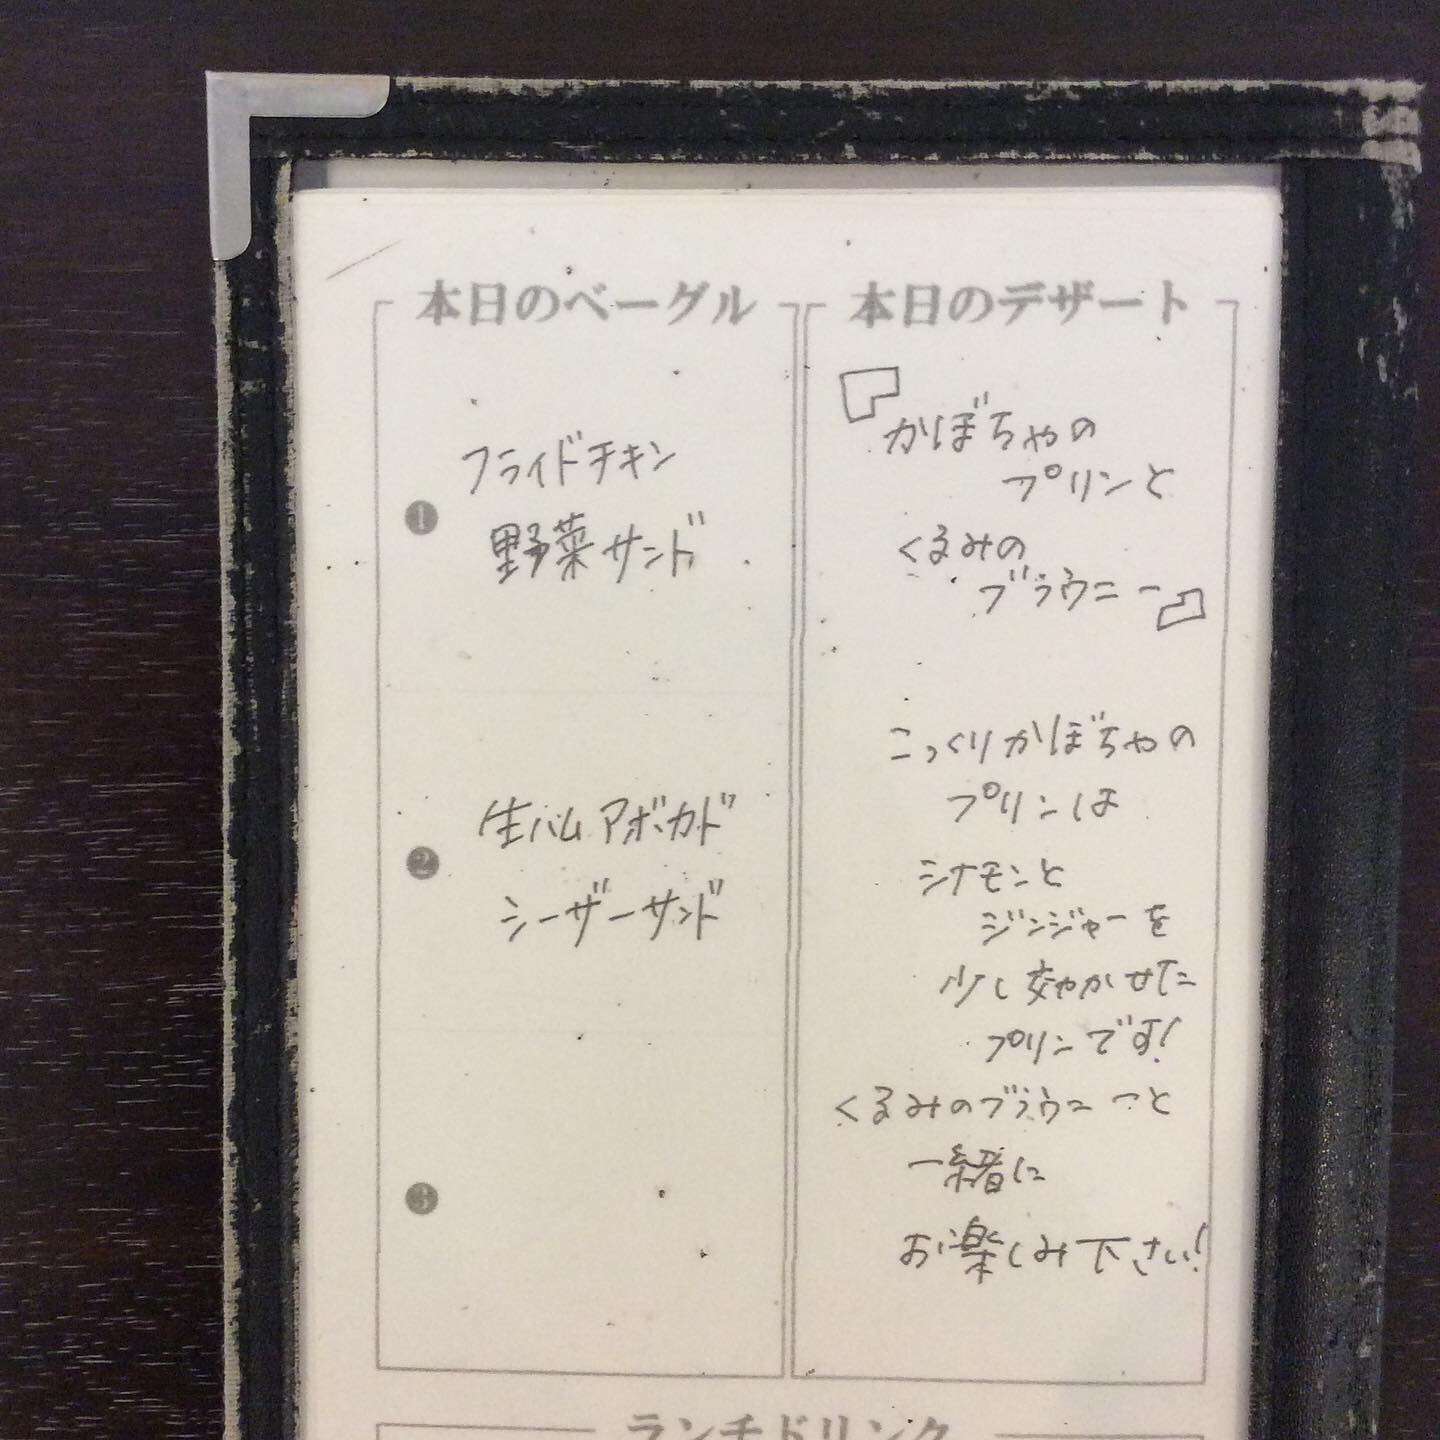 本日のベーグル
❶
フライドチキン
野菜サンド
❷
生ハムアボカド
シーザーサンド
❸
本日のデザート
『かぼちゃの
プリンと
くるみの
ブラウニー』
こっくりかぼちゃの
プリンは
シナモンと
ジンジャーを
少し効かせた
プリンです!
くるみのブラウニーと
一緒に
お楽しみ下さい!
ランチドリンク